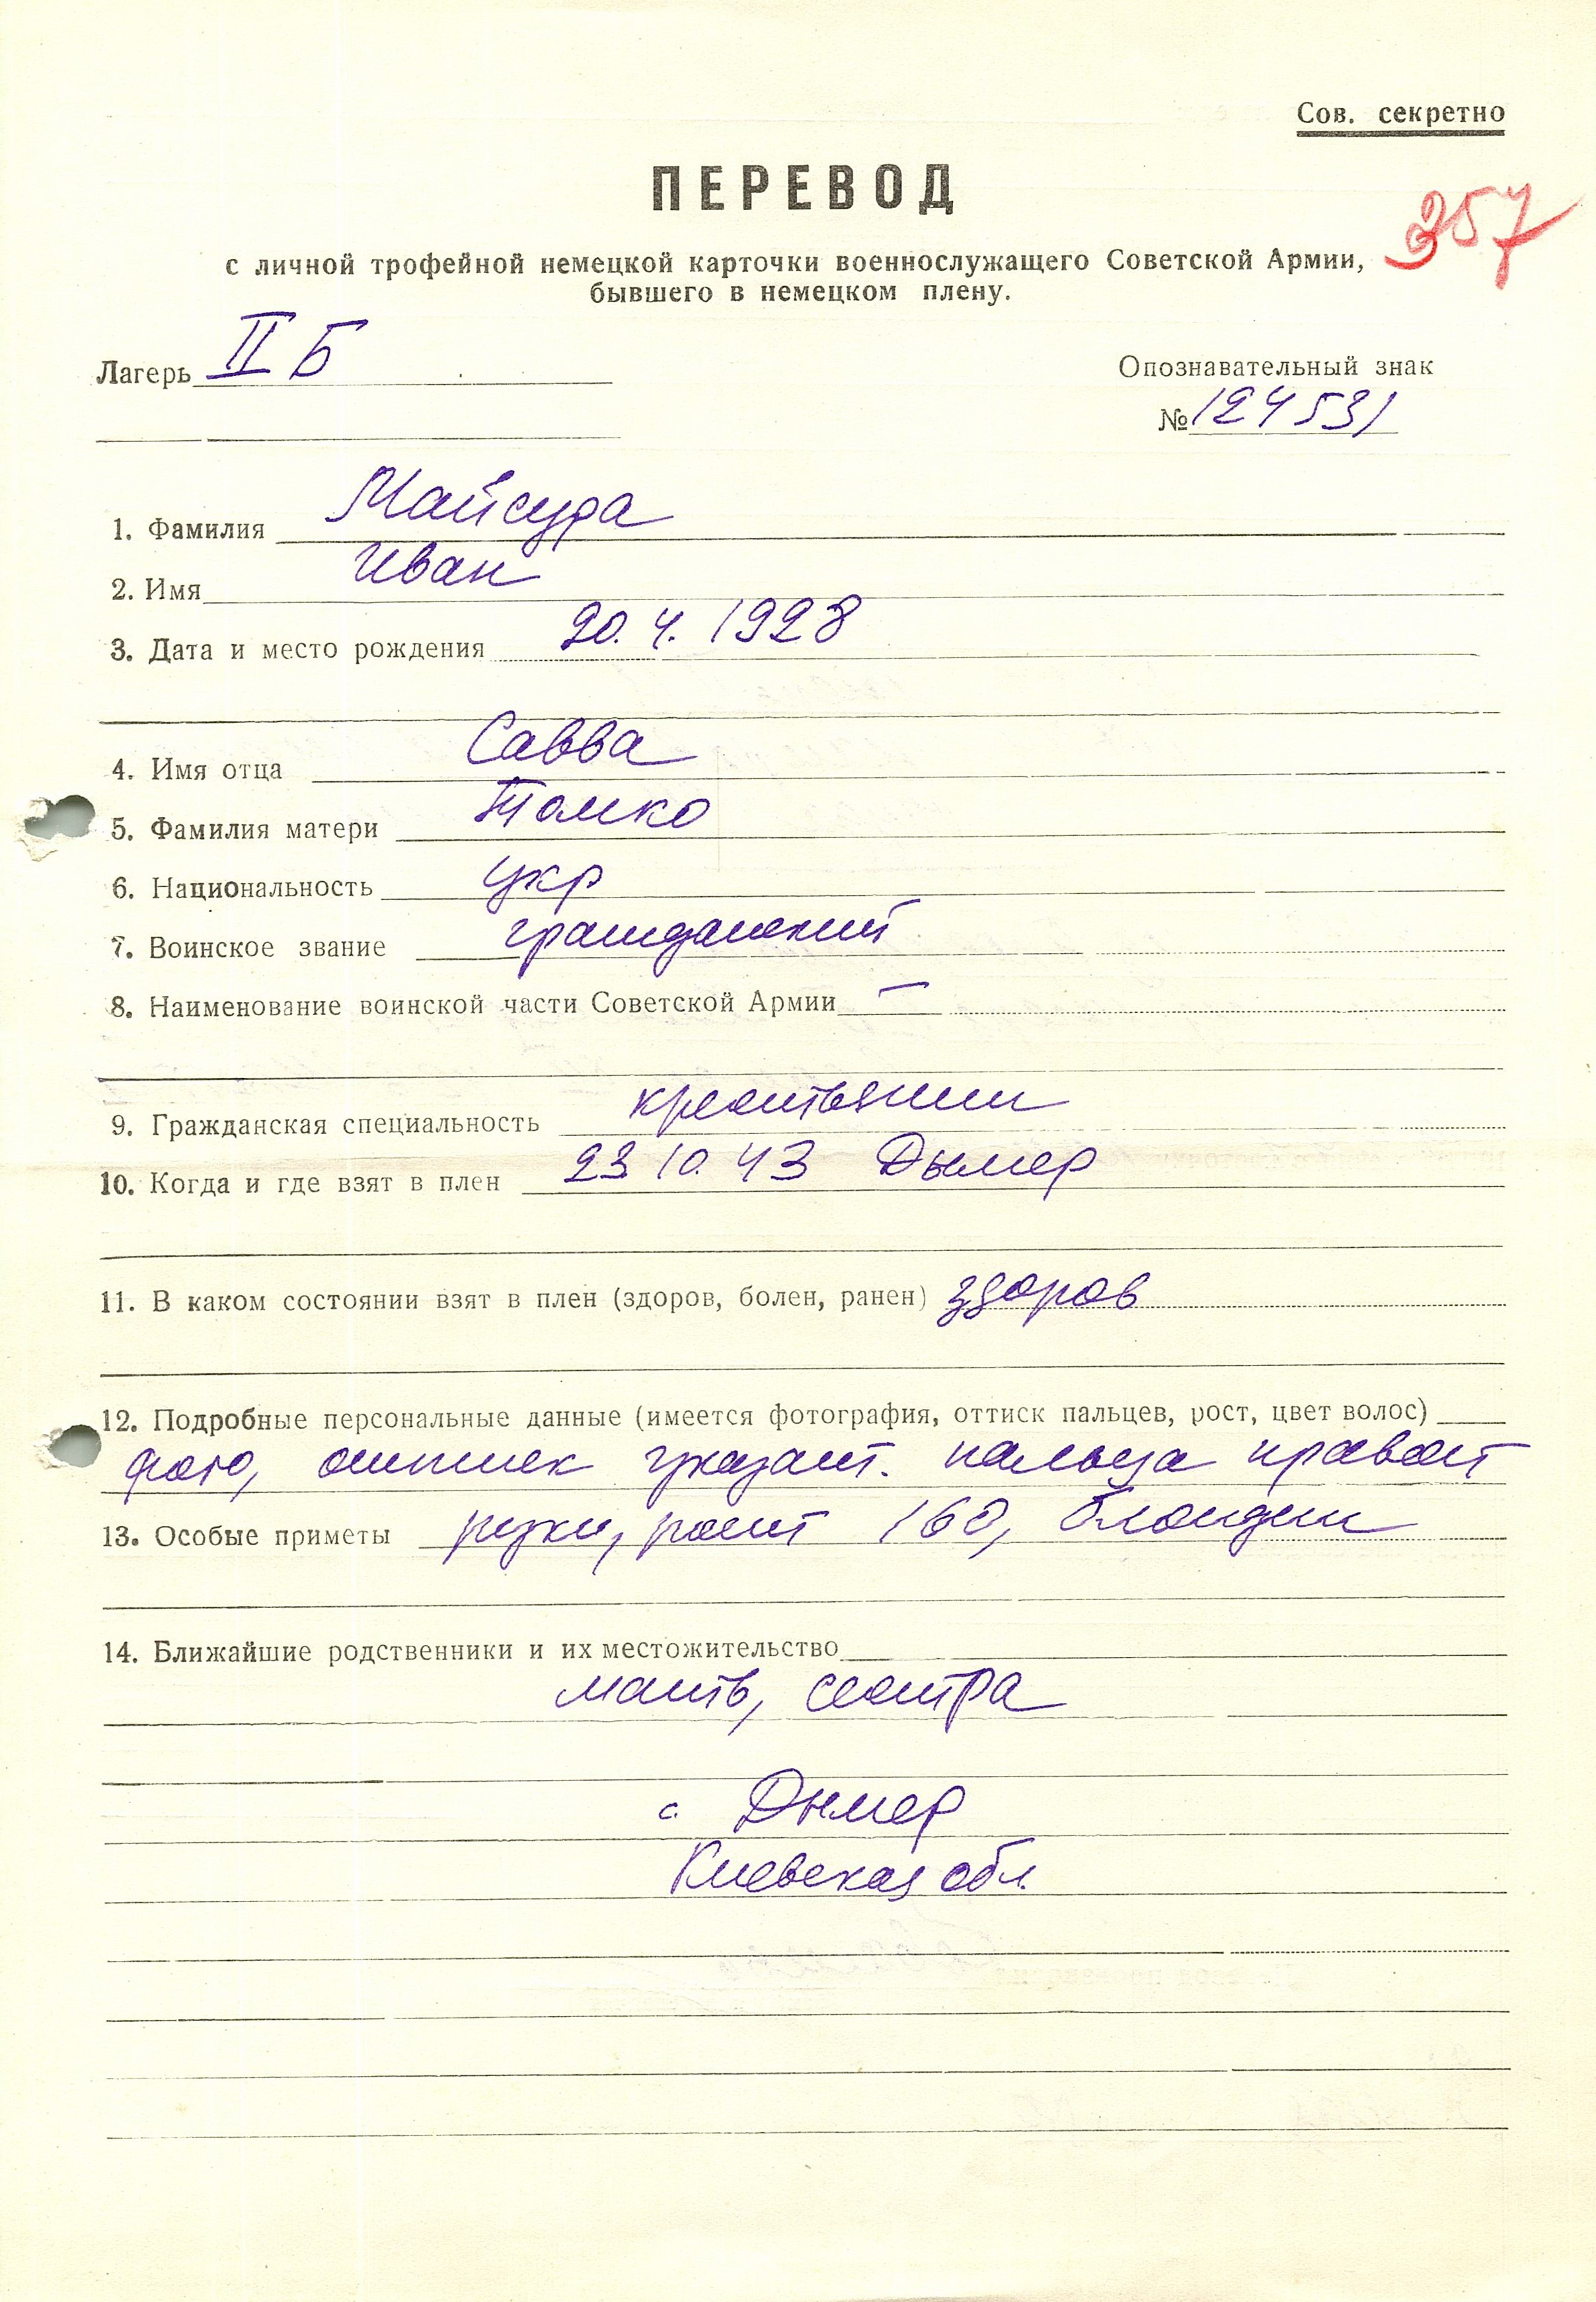 Сов. секретно
ПЕРЕВОД
357
с личной трофейной немецкой карточки военнослужащего Советской Армии,
бывшего в немецком плену.
Лагерь II Б
Опознавательный знак
№ 124531
1. Фамилия Майсура
2. Имя Иван
3. Дата и место рождения 20.4.1928
4. Имя отца Савва
5. Фамилия матери Томко
6. Национальность укр
7. Воинское звание гражданский
8. Наименование воинской части Советской Армии —
9. Гражданская специальность крестьянин
10. Когда и где взят в плен 23 10. 43 Дымер
11. В каком состоянии взят в плен (здоров, болен, ранен) здоров
12. Подробные персональные данные (имеется фотография, оттиск пальцев, рост, цвет волос)
фото, оттиск указат. пальца правой
13. Особые приметы руки, рост 160, блондин
14. Ближайшие родственники и их местожительство
мать, сестра
с. Дымер
Киевская обл.